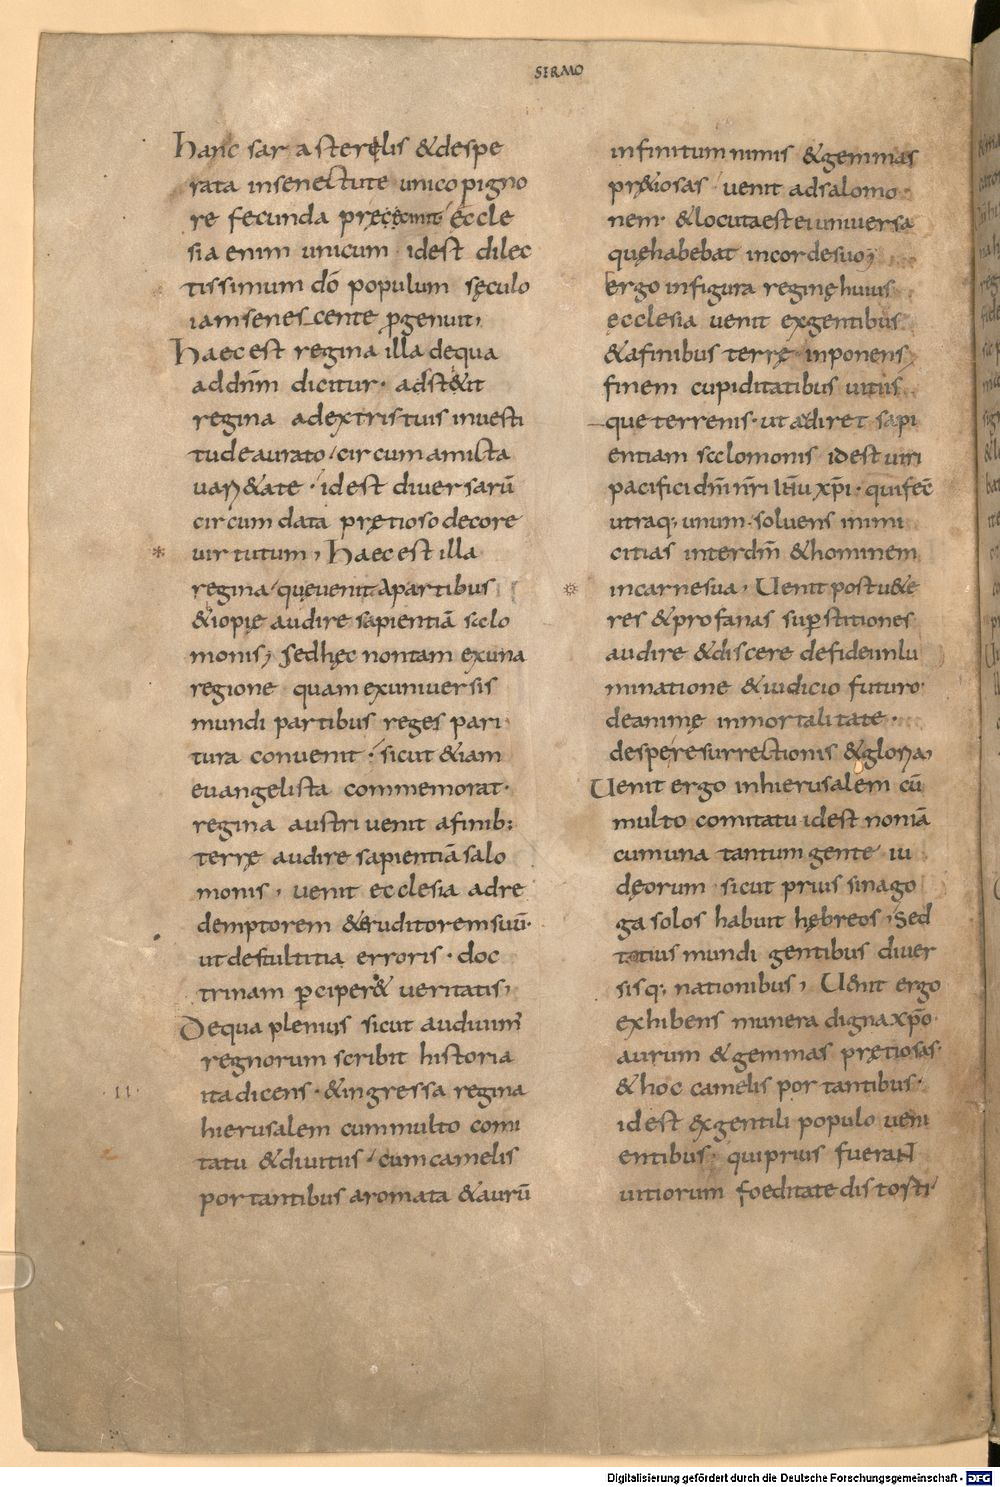 SERMO
hanc sarra sterelis & despe
rata in senectute unico pigno
re fecunda prececinit Eccle
sia enim unicum · id est dilec
tissimum dõ populum sęculo
iam senescente p̱genuit,
Haec est regina illa de qua
ad dñm dicitur · adst&it
regina a dextris tuis in uesti
tu deaurato / circum amicta
uari&ate · id est diuersarũ
circumdata prętioso decore
uirtutum, Haec est illa
regina / quę uenit a partibus
&iopię audire sapientiã solo
monis, sed hęc non tam ex una
regione quam ex uniuersis
mundi partibus reges pari
tura conuenit · sicut &iam
euangelista commemorat ·
regina austri uenit a finib;
terrę audire sapientiã salo
monis, uenit ecclesia ad re
demptorem & eruditorem suũ ·
ut de stultitia erroris · doc
trinam p̱ciper& ueritatis,
De qua plenius sicut audiuim̄
regnorum scribit historia
·II·
ita dicens · & ingressa regina
hierusalem cum multo comi
tatu & diuitiis / cum camelis
portantibus aromata & aurũ
infinitum nimis & gemmas
pr&iosas uenit ad salomo
nem · & locuta est ei uniuersa
quę habebat in corde suo,
Ergo in figura reginę huius
ecclesia uenit ex gentibus
& a finibus terrę inponens
finem cupiditatibus uitiis
que terrenis · ut adiret sapi
entiam solomonis id est uiri
pacifici dñi nr̄i ihũ xp̄i · qui fec̄
utraq; unum · soluens inimi
citias inter dm̄ & hominem
in carne sua, Uenit post u&e
res & profanas sup̱stitiones
audire & discere de fidei inlu
minatione & iudicio futuro ·
de animę inmortalitate ·
de spe resurrectionis & gloria,
Uenit ergo in hierusalem cũ
multo comitatu id est non iã
cum una tantum gente iu
dęorum sicut prius sinago
ga solos habuit hębreos, Sed
totius mundi gentibus diuer
sisq; nationibus, Uenit ergo
exhibens munera digna xp̄o ·
aurum & gemmas prętiosas ·
& hoc camelis portantibus ·
id est ex gentili populo ueni
entibus · qui prius fuerant
uitiorum foeditate distorti
Digitalisierung gefördert durch die Deutsche Forschungsgemeinschaft - DFG